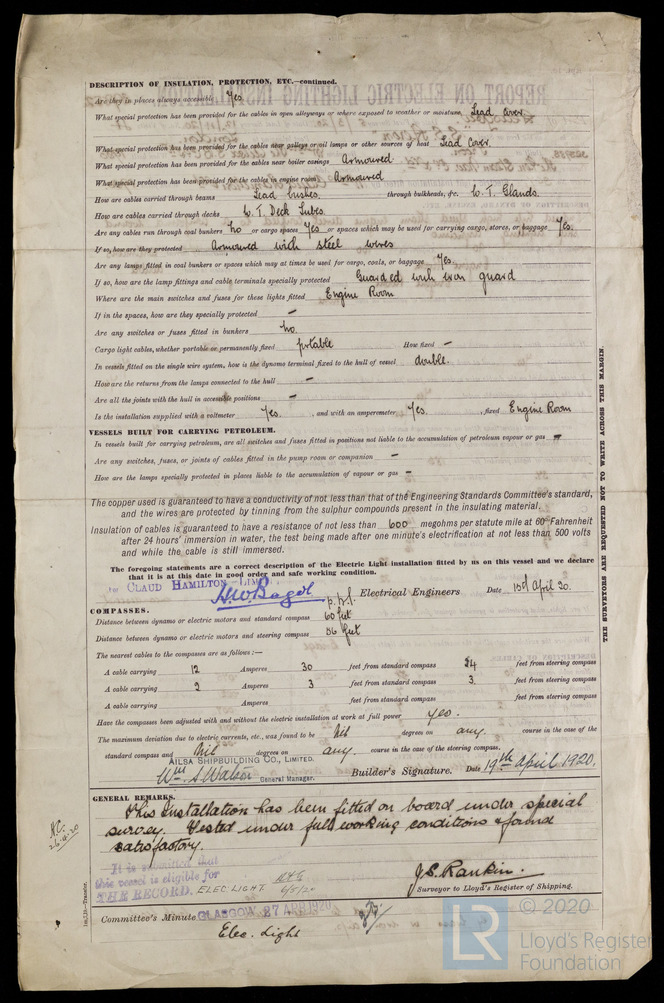 DESCRIPTION OF INSULATION, PROTECTION, ETC.—continued.
Are they in places always accessible Yes.
What special protection has been provided for the cables in open alleyways or where exposed to weather or moisture, Lead Cover.
What special protection has been provided for the cables near galleys or oil lamps or other sources of heat Lead Cover.
What special protection has been provided for the cables near boiler casings Armoured
What special protection has been provided for the cables in engine room Armoured
How are cables carried through beams Lead bushes. through bulkheads, &c. W. T. Glands.
How are cables carried through decks W. T. Deck Tubes.
Are any cables run through coal bunkers No or cargo spaces Yes or spaces which may be used for carrying cargo, stores, or baggage Yes.
If so, how are they protected Armoured with steel wires
Are any lamps fitted in coal bunkers or spaces which may at times be used for cargo, coals, or baggage Yes.
If so, how are the lamp fittings and cable terminals specially protected Guarded with iron guard
Where are the main switches and fuses for these lights fitted Engine Room
If in the spaces, how are they specially protected —
Are any switches or fuses fitted in bunkers No.
Cargo light cables, whether portable or permanently fixed portable How fixed —
In vessels fitted on the single wire system, how is the dynamo terminal fixed to the hull of vessel double.
How are the returns from the lamps connected to the hull —
Are all the joints with the hull in accessible positions —
Is the installation supplied with a voltmeter Yes. , and with an amperemeter Yes. , fixed Engine Room
VESSELS BUILT FOR CARRYING PETROLEUM.
In vessels built for carrying petroleum, are all switches and fuses fitted in positions not liable to the accumulation of petroleum vapour or gas —
Are any switches, fuses, or joints of cables fitted in the pump room or companion —
How are the lamps specially protected in places liable to the accumulation of vapour or gas —
The copper used is guaranteed to have a conductivity of not less than that of the Engineering Standards Committee's standard,
and the wires are protected by tinning from the sulphur compounds present in the insulating material.
Insulation of cables is guaranteed to have a resistance of not less than 600 megohms per statute mile at 60° Fahrenheit
after 24 hours' immersion in water, the test being made after one minute's electrification at not less than 500 volts
and while the cable is still immersed.
The foregoing statements are a correct description of the Electric Light installation fitted by us on this vessel and we declare
that it is at this date in good order and safe working condition.
CLAUD HAMILTON LIMITED
Electrical Engineers Date 15th April 20.
COMPASSES.
Distance between dynamo or electric motors and standard compass 60 feet
Distance between dynamo or electric motors and steering compass 56 feet
The nearest cables to the compasses are as follows:—
A cable carrying 12 Amperes 30 feet from standard compass 24 feet from steering compass
A cable carrying 2 Amperes 3 feet from standard compass 3. feet from steering compass
A cable carrying Amperes feet from standard compass feet from steering compass
Have the compasses been adjusted with and without the electric installation at work at full power Yes.
The maximum deviation due to electric currents, etc., was found to be Nil degrees on any. course in the case of the
standard compass and Nil degrees on any. course in the case of the steering compass.
AILSA SHIPBUILDING CO., LIMITED.
Wm. A. Watson General Manager. Builder's Signature. Date 19th April 1920.
GENERAL REMARKS.
This Installation has been fitted on board under special
survey. Tested under full working conditions & found
satisfactory.
It is submitted that
this vessel is eligible for
THE RECORD. ELEC. LIGHT 6/5/20
J. S. Rankin.
Surveyor to Lloyd's Register of Shipping.
Committee's Minute GLASGOW 27 APR 1920
Elec. Light
THE SURVEYORS ARE REQUESTED NOT TO WRITE ACROSS THIS MARGIN.
26.4.20
© 2020
LR
Lloyd's Register
Foundation